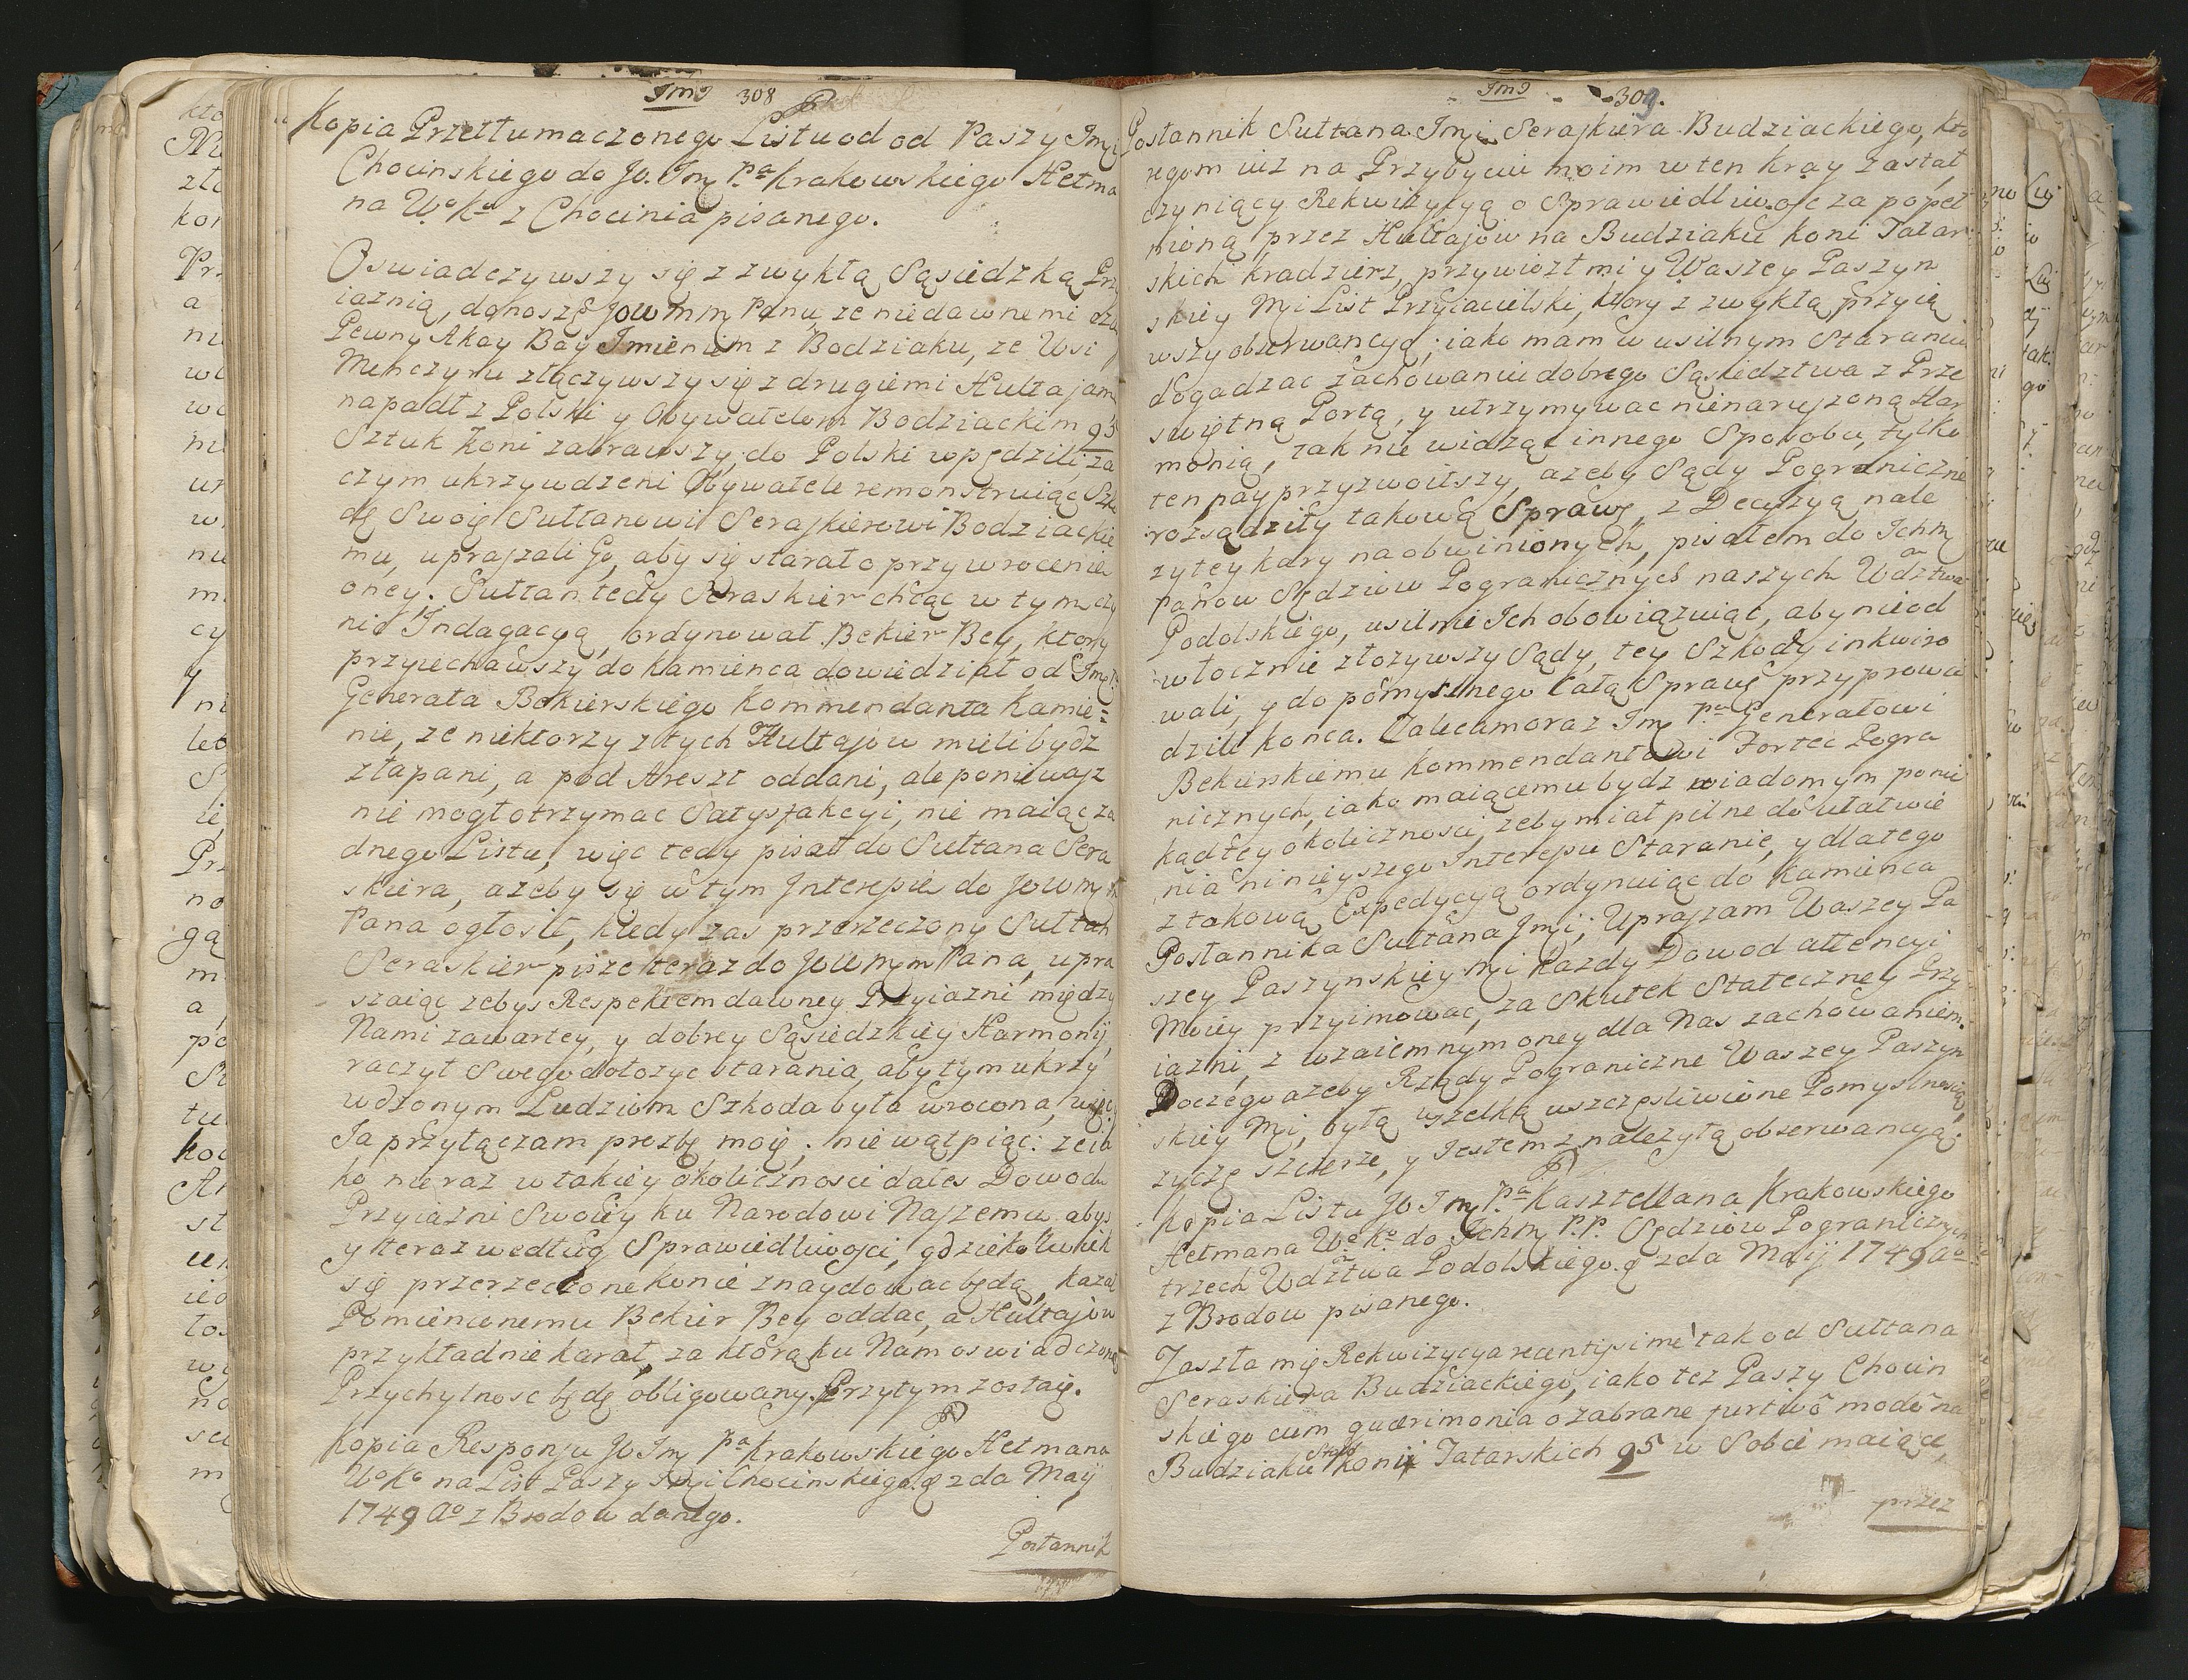 Imo 308
Kopia Przettumaczonego Listu od od Paszy Imi
Chocinskiego do Jo. Im Pa Krakowskiego Hetma
na Wo Ko z Chocinia pisanego.
Oswiadczywszy się z zwykłą Sąsiedzką Prz
iaznią, donoszę JoWmm Panu, ze niedawnemi czasy
Pewny Akay Bay Imieniem z Bodziaku, ze Wsi
Menczyru złączywszy się z drugiemi Hultajami
napadł z Polski y Obywatelom Bodziackim 95
Sztuk koni zabrawszy, do Polski wpędzili, za
czym ukrzywdzeni Obywatele remonstruiąc Szko
dę Swoię Sułtanowi Seraskierowi Bodziackie
mu, upraszali Go, aby się starał o przywrocenie
oney. Sułtan tedy Seraskier chcąc w tym czy
nić Indagacyą, ordynował Bekier Bey, ktory
przyiechawszy do Kamienca dowiedział od Imp
Generała Bekierskiego Kommendanta Kamie=
nie, ze niektorzy z tych Hultajow mieli bydz
złapani, a pod Areszt oddani, ale poniewasz
nie mogł otrzymac Satysfakcyi, nie maiąc za
dnego Listu, więc tedy pisał do Sułtana Sera
skiera, azeby się w tym Interesie do JoWmm
Pana ogłosił, kiedy zas przerzeczony Sułtan
Seraskier pisze teraz do JoWmm Pana, upra
szaiąc zebys Respektem dawney Przyiazni między
Nami zawartey, y dobrey Sąsiedzkiey Harmonij,
raczył Swego dołozyc starania, aby tym ukrzy
wdzonym Ludziom Szkoda była wrocona, więc
Ia przyłączam prozbę moię; nie wątpiąc: ze ia
ko nie raz w takiey okolicznosci dałes Dowodu
Przyiazni Swoiey ku Narodowi Naszemu, abys
y teraz według Sprawiedliwosci, gdziekolwiek
się przerzeczone konie znaydowac będą, kazał
Pomienionemu Bekier Bey oddac, a Hultajow
przykładnie karał, za ktorą ku Nam oswiadczoną
Przychylnosc będę obligowany. Przytym zostaię.
Kopia Responsu Jo Im Pa Krakowskiego Hetmana
Wo Ko na List Paszy Imi Chocinskiego 9 zda Maij
1749 Ao z Brodow danego.
Posłannik
Imo 309.
Posłannik Sułtana Imi Seraskiera Budziackiego, kto
regom iuz na Przybyciu moim w ten kray zastał,
czyniący Rekwizycyą o Sprawiedliwosc za popeł
nioną przez Hultajow na Budziaku koni Tatar
skich kradziez, przywiozł mi y Waszey Paszyn
skiey Mci List Przyiacielski, ktory z zwykłą przyią
wszy obserwancyą; iako mam w usilnym Staraniu
dogadzac zachowaniu dobrego Sąsiedztwa z Prze
swiętną Portą, y utrzymywac nienaruszoną Har
monią, tak nie widząc innego Sposobu, tylko
ten nayprzyzwoitszy, azeby Sądy Pograniczne
rozsądziły takową Sprawę, z Decyzyą nale
zytey kary na obwinionych, pisałem do Ichm
Panow Sędziow Pogranicznych naszych Wdztwa
Podolskiego, usilnie Ich obowiązuiąc, aby nieod
włocznie złozywszy Sądy, tey Szkody inkwiro
wali, y do pomyslnego całą Sprawę przyprowa
dzili konca. Zalecam oraz Im Pa Generałowi
Bekierskiemu Kommendantowi Fortec Pogra
nicznych, iako maiącemu bydz wiadomym ponie
kąd tey okolicznosci, zeby miał pilne do ułatwie
nia ninieyszego Interesu Staranie, y dlatego
z takową Expedycyą ordynuiąc do Kamienca
Posłannika Sułtana Imi; Upraszam Waszey Pa
szey Paszynskiey Mci kazdy Dowod attencyi
Moiey przyimowac, za Skutek Stateczney Przy
iazni, z wzaiemnym oney dla Nas zachowaniem.
Doczego azeby Rządy Pograniczne Waszey Paszyn
skiey Mci, były wszelką uszczęsliwione Pomyslnoscią,
zyczę szczerze, y Iestem z nalezytą obserwancyą.
Kopia Listu Jo Im Pa Kasztellana Krakowskiego
Hetmana Wo Ko do Ichm P.P. Sędziow Pogranicznych
trzech Wdztwa Podolskiego 9 zda Maij 1749 Ao
z Brodow pisanego.
Zaszła mię Rekwizycya recentissime tak od Sułtana
Seraskiera Budziackiego, iako tez Paszy Chocin
skiego cum quaerimonia o zabrane furtivo modo na
Budziaku Stado koni Tatarskich 95 w Sobie maiące,
przez